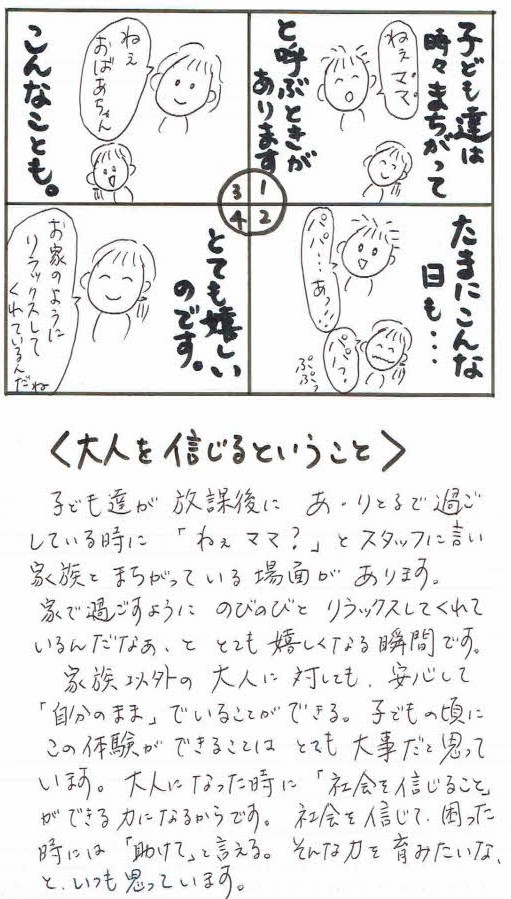 子ども達は
時々まちがって
ねぇママ
と呼ぶときが
あります
1
たまにこんな
日も…
パパ…あっ!!
パパっ?
ぷぷぷっ
2
ねぇ
おばあちゃん
こんなことも。
3
とても嬉しい
のです。
お家のように
リラックスして
くれているんだね
4
<大人を信じるということ>
子ども達が放課後に あ・りとるで過ご
している時に「ねぇママ?」とスタッフに言い
家族とまちがっている場面があります。
家で過ごすようにのびのびとリラックスしてくれて
いるんだなぁ、ととても嬉しくなる瞬間です。
家族以外の大人に対しても、安心して
「自分のまま」でいることができる。子どもの頃に
この体験ができることはとても大事だと思って
います。大人になった時に「社会を信じること」
ができる力になるからです。社会を信じて、困った
時には「助けて」と言える。そんな力を育みたいな、
と、いつも思っています。